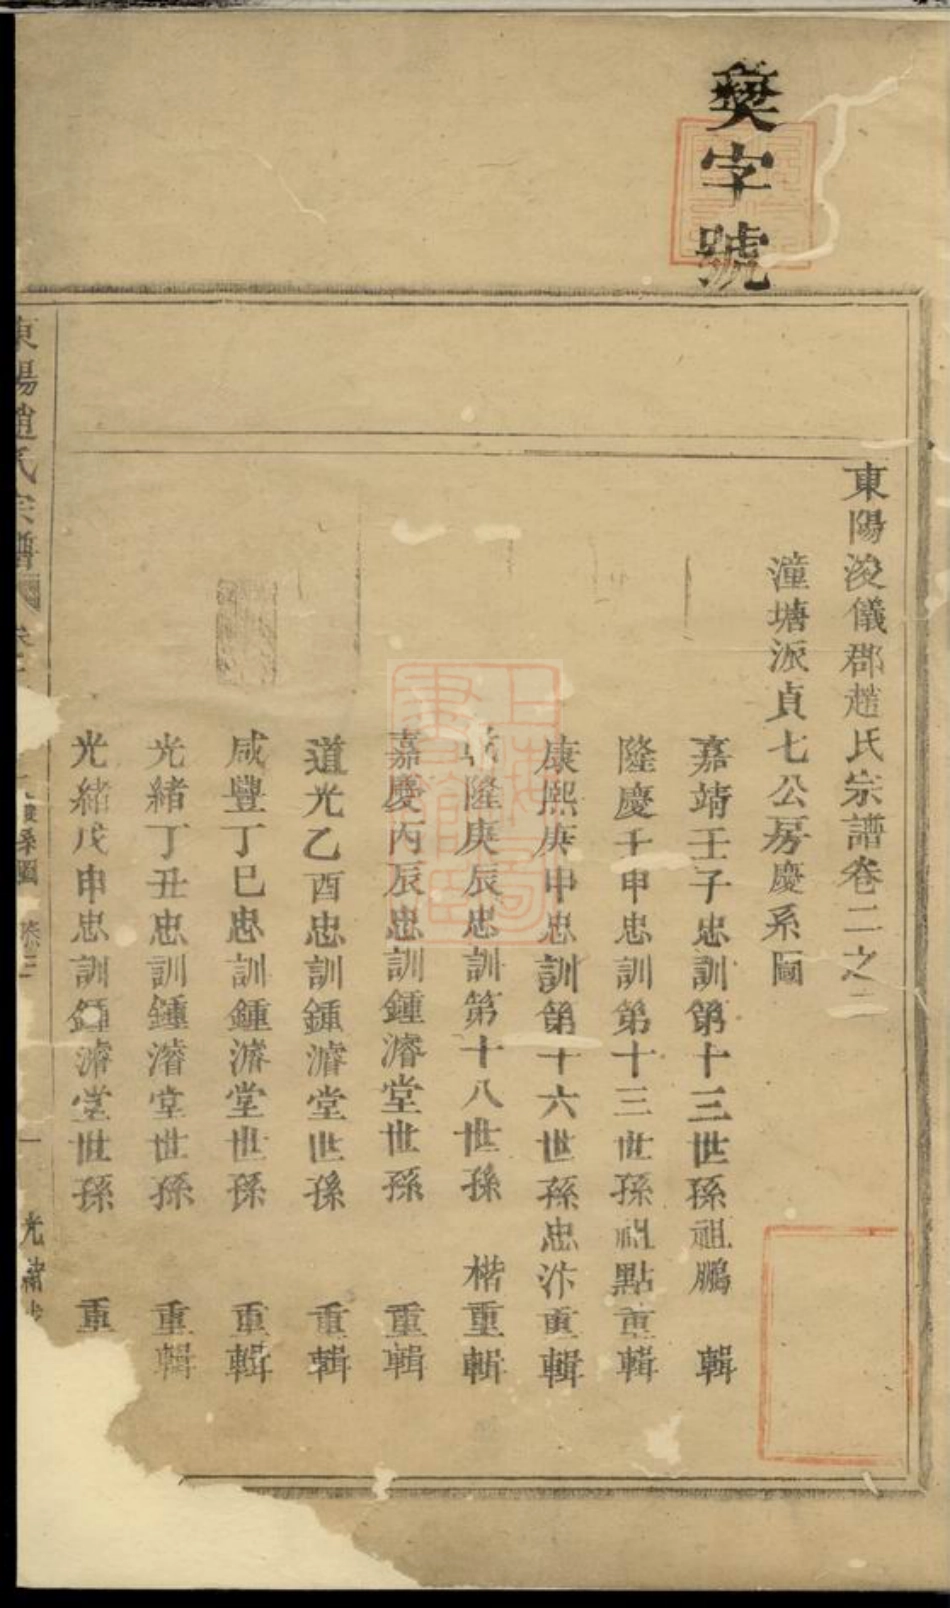 字號
東陽浚儀郡趙氏宗譜卷二之二
潼塘派貞七公房慶系圖
嘉靖壬子忠訓第十三世孫祖鵬 輯
隆慶壬申忠訓第十三世孫祖點重輯
康熙庚申忠訓第十六世孫忠汴重輯
乾隆庚辰忠訓第十八世孫 楷重輯
嘉慶丙辰忠訓鍾濬堂世孫 重輯
道光乙酉忠訓鍾濬堂世孫 重輯
咸豐丁巳忠訓鍾濬堂世孫 重輯
光緒丁丑忠訓鍾濬堂世孫 重輯
光緒戊申忠訓鍾濬堂世孫 重
東陽趙氏宗譜 卷 系圖 一 光緒
上海圖書館藏